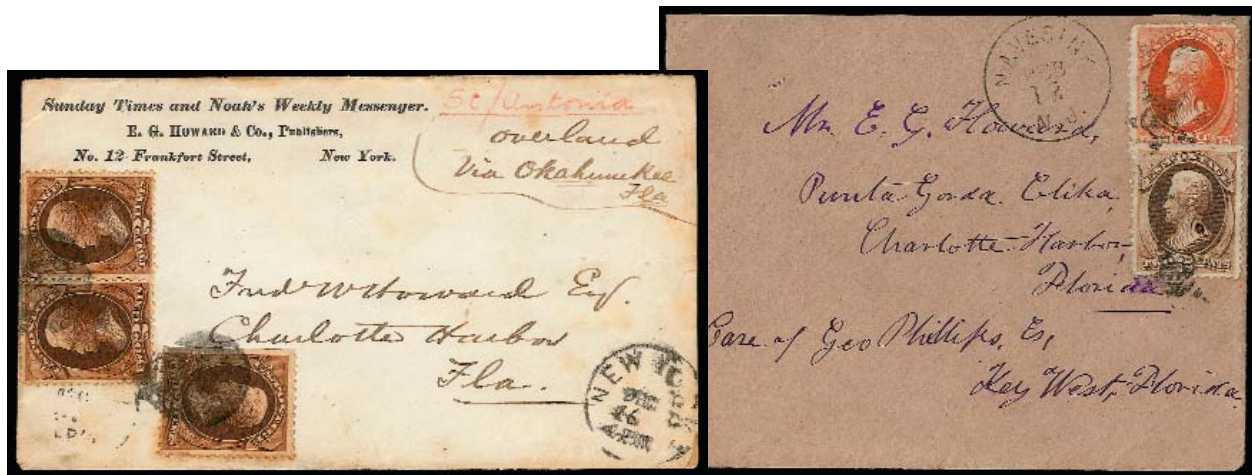 Sunday Times and Noah's Weekly Messenger.
E. G. HOWARD & Co., Publishers,
No. 12 Frankfort Street, New York.
overland
Via Okahumkee
Fla
Fred W Howard Esq.
Charlotte Harbor
Fla.
NEW YORK
DEC
26
Mr. E. G. Howard,
Punta Gorda
Charlotte Harbor,
Florida
Care of Geo Phillips, Es,
Key West, Florida.
N.J.
FEB